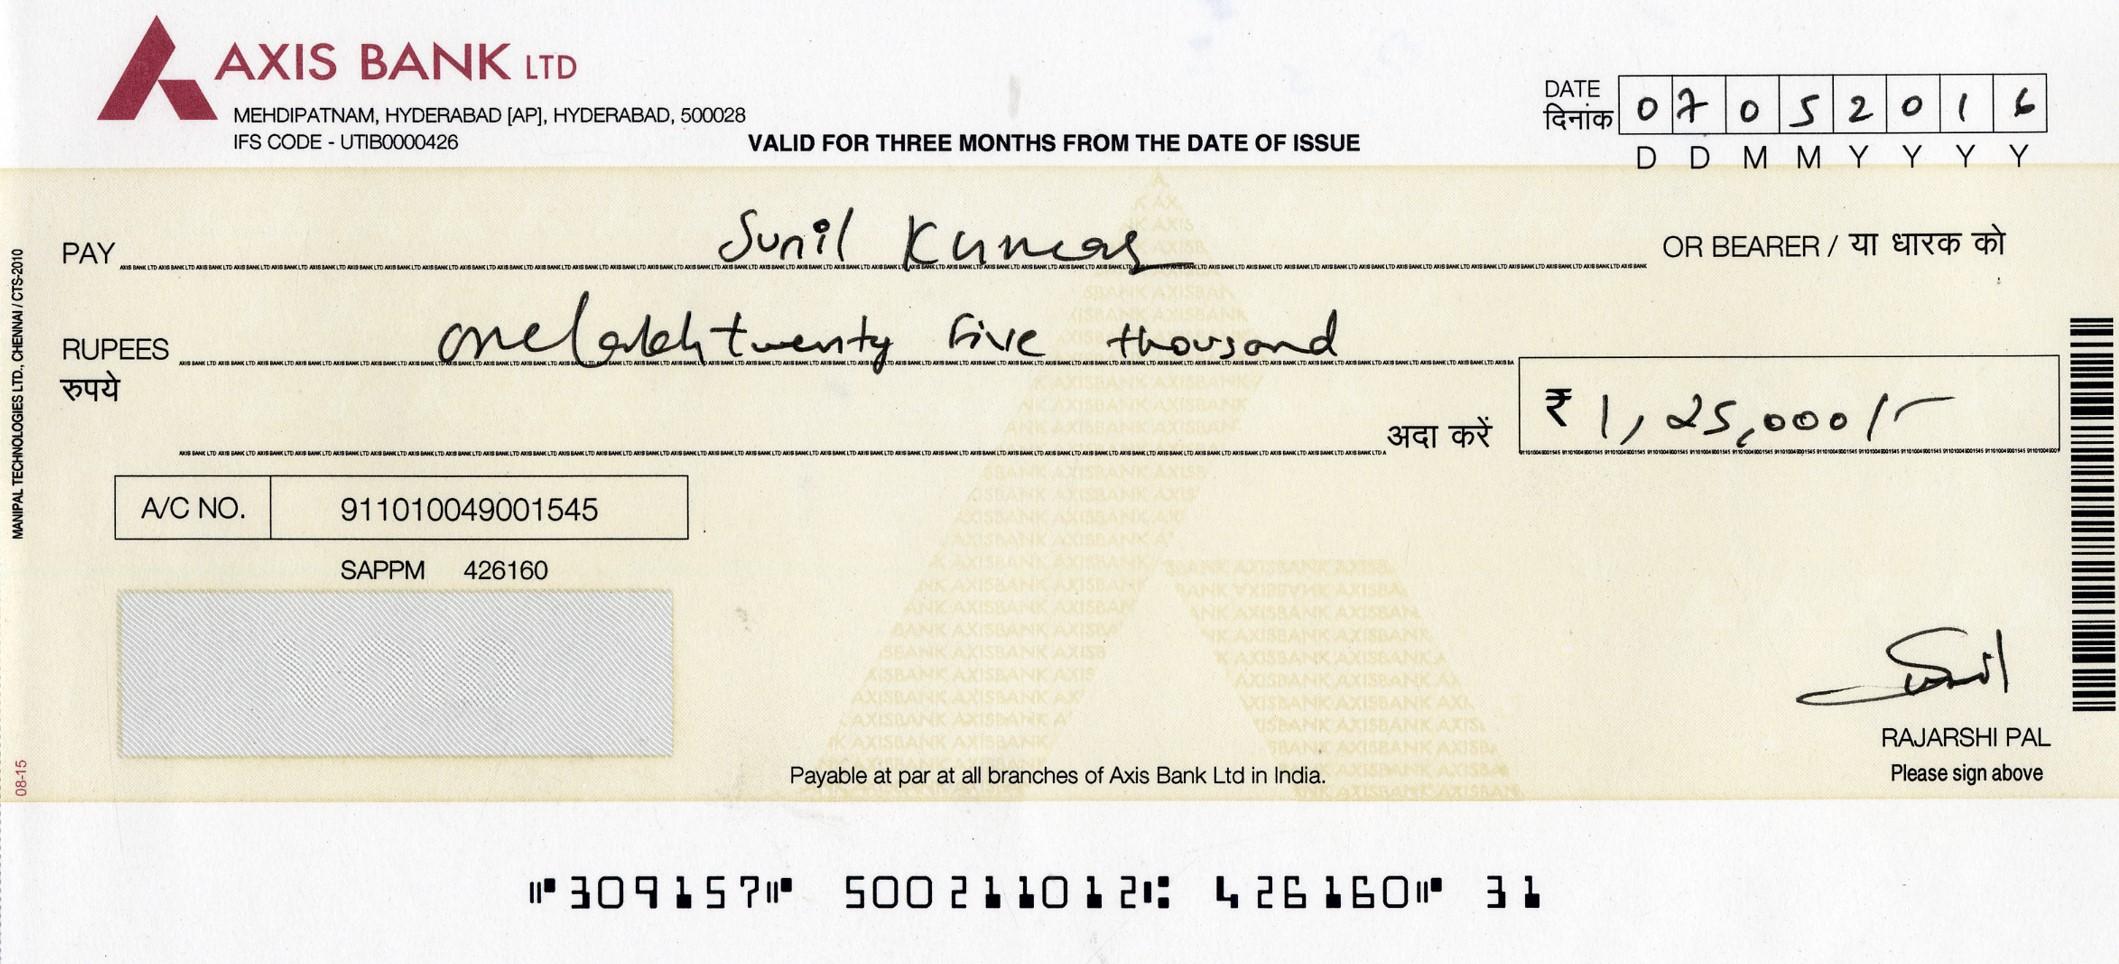 AXIS BANK LTD
MEHDIPATNAM, HYDERABAD [AP], HYDERABAD, 500028
IFS CODE - UTIB0000426
VALID FOR THREE MONTHS FROM THE DATE OF ISSUE
DATE
दिनांक
0 7 0 5 2 0 1 6
D D M M Y Y Y Y
PAY Sunil Kumar OR BEARER / या धारक को
RUPEES one lakh twenty five thousand
रुपये
अदा करें ₹ 1,25,000/-
A/C NO. 911010049001545
SAPPM 426160
VOID
RAJARSHI PAL
Please sign above
Payable at par at all branches of Axis Bank Ltd in India.
MANIPAL TECHNOLOGIES LTD., CHENNAI / CTS-2010
08-15
Sunil
⑈309157⑈ 500211012⑆ 426160⑈ 31